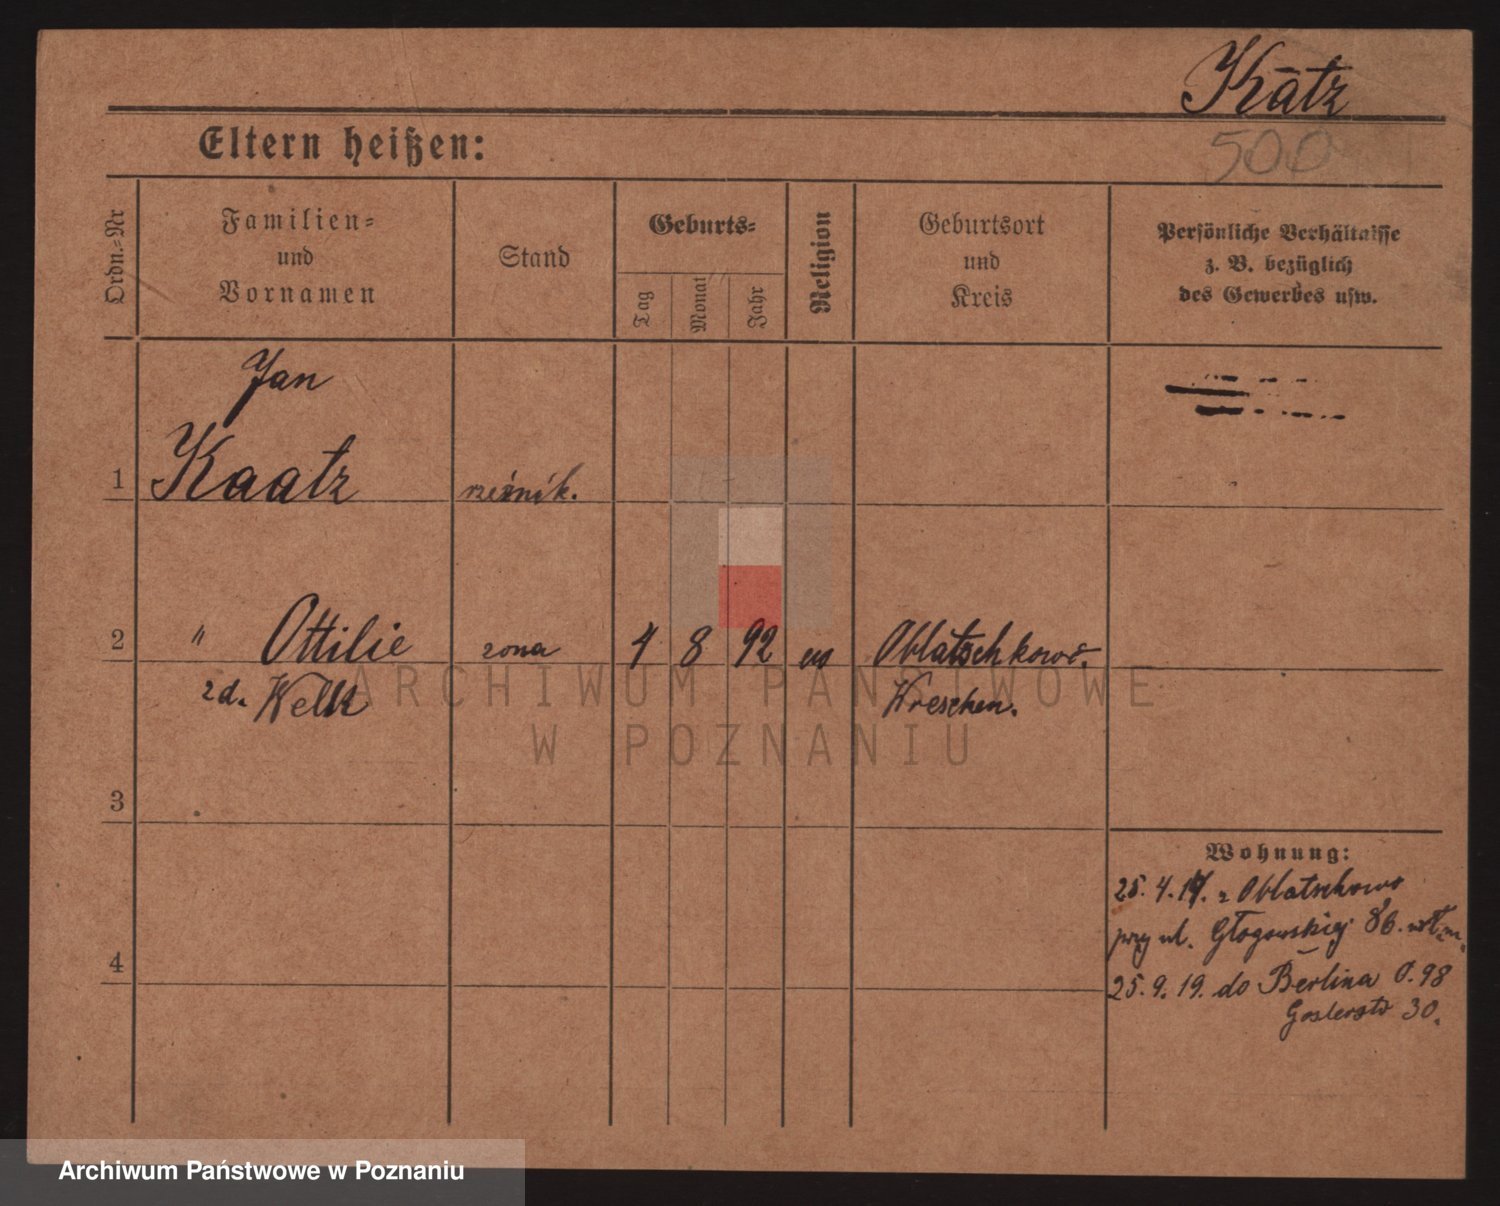 Kātz
500
Eltern heißen:
Ordn.=Nr
Familien=
und
Vornamen
Stand
Geburts=
Tag
Monat
Jahr
Religion
Geburtsort
und
Kreis
Persönliche Verhältnisse
z. B. bezüglich
des Gewerbes usw.
Jan
1 Kaatz rzeźnik.
2 " Ottilie zona 4 8 92 ev Oblatschkowo.
zd. Welk Wreschen.
ARCHIWUM PAŃSTWOWE
W POZNANIU
3
4
Wohnung:
25.4.17. z Oblatschkowo
przy ul. Głogowskiej 86.
25.9.19. do Berlina O.98
Goslerstr 30.
Archiwum Państwowe w Poznaniu